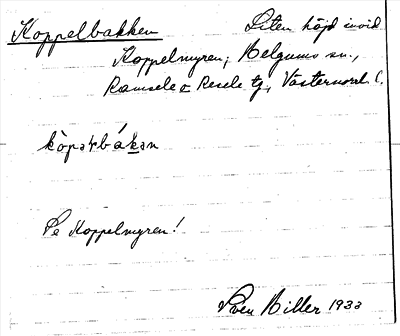 Koppelbakken Liten höjd invid
Koppelmyren, Helgums sn.,
Ramsele o Resele tg, Västernorrl. l.
kòpəɫbákan
Se Koppelmyren!
Sven Hiller 1933